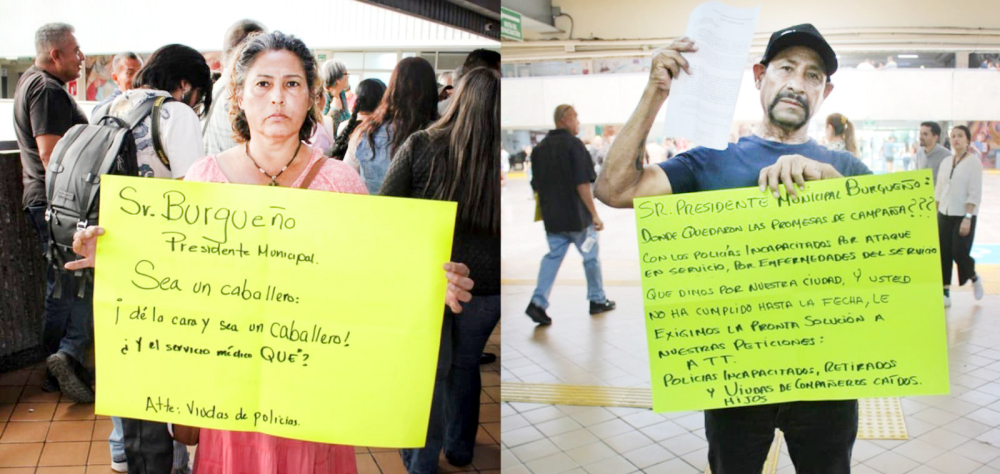 Sr. BURGUEÑO
Presidente Municipal.
Sea un caballero:
¡ dé la cara y sea un caballero!
¿ y el servicio médico QUE?
Atte: Viudas de policías.
SR. PRESIDENTE MUNICIPAL BURGUEÑO:
DONDE QUEDARON LAS PROMESAS DE CAMPAÑA???
CON LOS POLICÍAS INCAPACITADOS POR ATAQUE
EN SERVICIO, POR ENFERMEDADES DEL SERVICIO
QUE DIMOS POR NUESTRA CIUDAD, Y USTED
NO HA CUMPLIDO HASTA LA FECHA, LE
EXIGIMOS LA PRONTA SOLUCIÓN A
NUESTRAS PETICIONES:
ATT.
POLICÍAS INCAPACITADOS, RETIRADOS
Y VIUDAS DE COMPAÑEROS CAÍDOS.
HIJOS